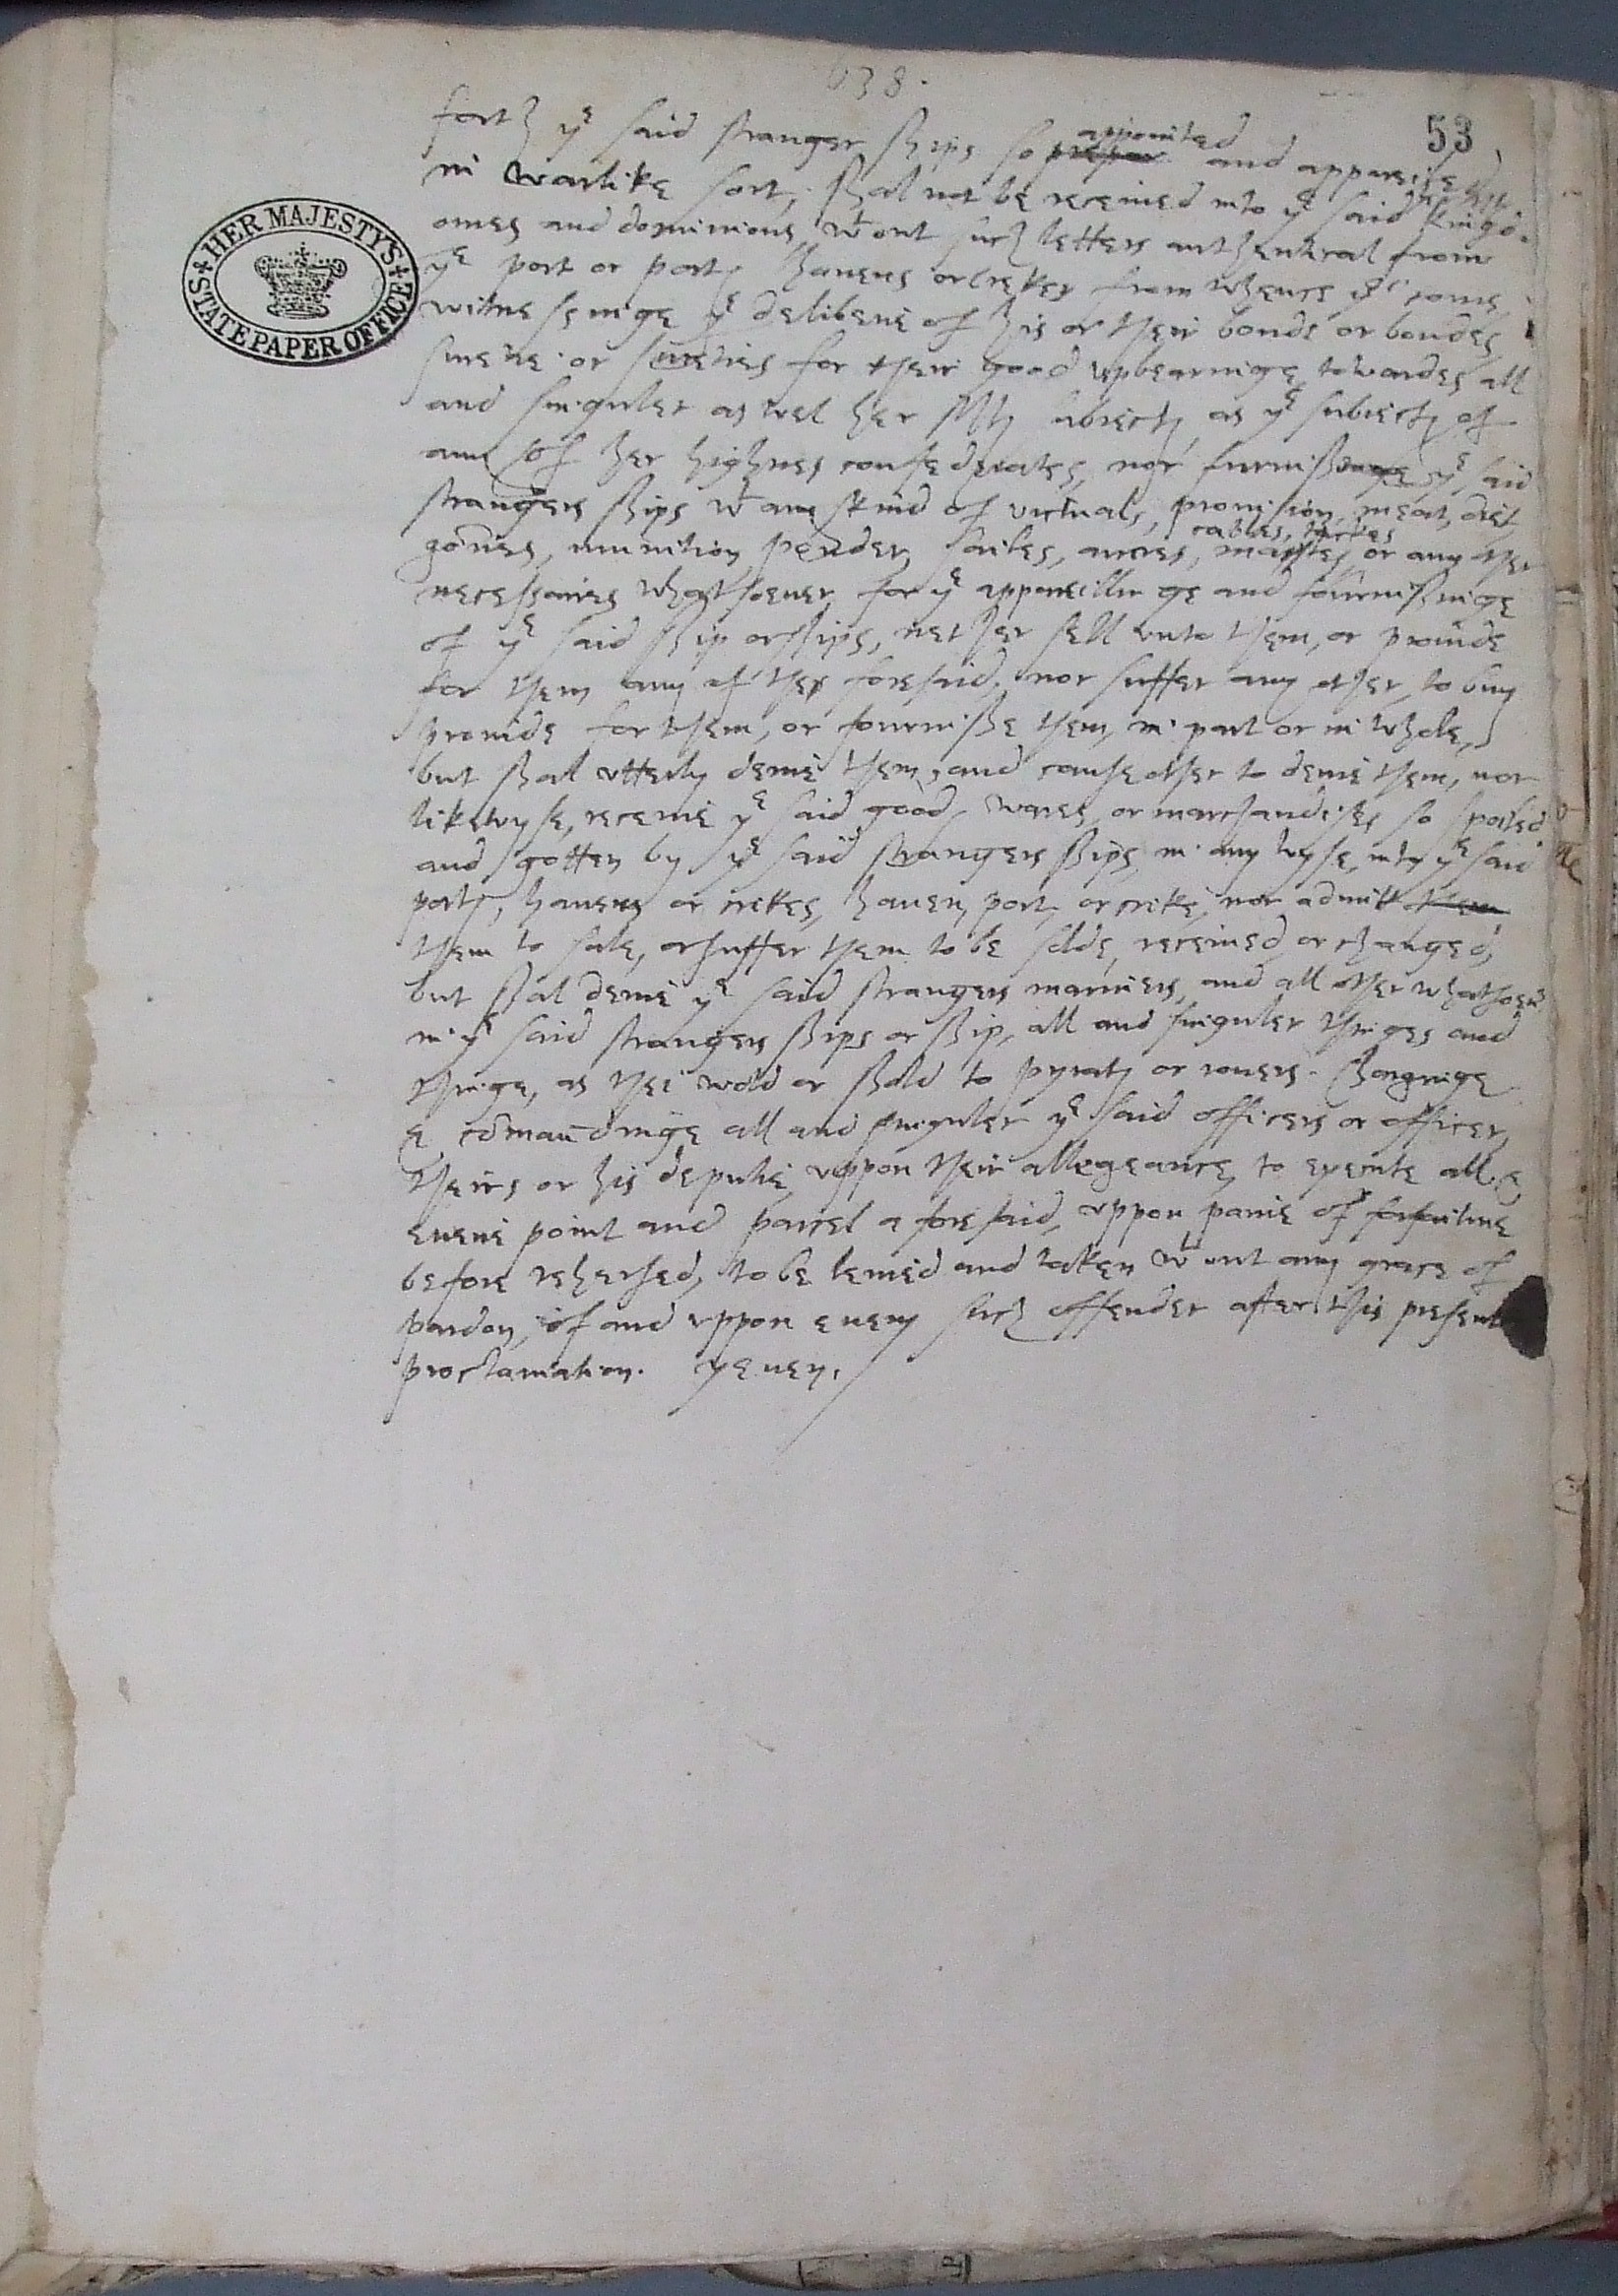 638.
53
forth yͤ said stranger ships so prepar appointed and appareiled
in warlike sort, shal not be receiued into yͤ said kingd-
omes and dominions, wᵗout such letters authentical from
yͤ port or portꝭ hauens or crekes from whence yᵉⁱ come,
witnessinge yͤ deliberie of his or their bonde or bondes,
suretie or sureties for their good vpbearinge towardes all
and singuler as wel her Mtꝭ subiectꝭ as yͤ subiectꝭ of
ani of her highnes confederates, nor furnishinge yͤ said
strangers ships wᵗ anie kind of victuals, prouision, meat, drik
gōnes, munition, pouder, sailes, ancres, cables, tackes mastes, or any other
necessaries whatsoeuer, for yͤ apparellinge and fournishinge
of yͤ said ship or ships, nether sell vnto them, or prouide
for them any of thes foresaid, nor suffer any other to buy
prouide for them, or fournishe them, in part or in whole,
but shal vtterly denie them, and cause other to denie them, nor
likewyse, receiue yͤ said goodꝭ wares, or marchandises so spoiled
and gotten by yͤ said strangers ships, in any wyse, into yͤ said
portꝭ, hauens or crekes, hauen, port, or creke, nor admitt them
them to sale, or suffer them to be solde, receiued or changed,
but shal denie yͤ said strangers mariners, and all other whatsoeuͬ
in yͤ said strangers ships or ship, all and singuler thinges and
thinge, as thei wold or shold to pyratꝭ or rouers. Chargeinge
& cōmaūdinge all and singuler yͤ said officers or officer,
theirs or his deputie, vppon their allegeance, to execute all &
euerie point and parcel aforesaid, vppon paine of forfaiture
before rehersed, to be leuied and taken wᵗout any grace of
pardon, of and vppon euery such offender after this present
proclamation. yeuen,
HER MAJESTY'S
STATE PAPER OFFICE